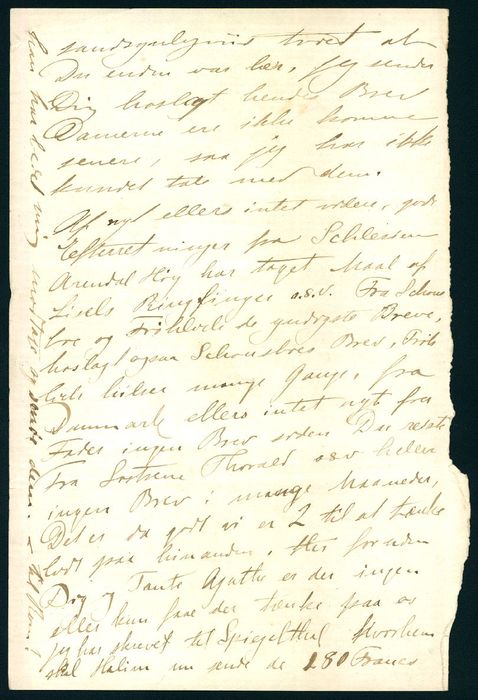 sandsynligviis troet at
Du endnu var her, jeg sender
Dig hoslagt hendes Brev
Damerne ere ikke komne
senere, saa jeg har ikke
kundet tale med dem.
Af nyt ellers intet uden, gode
Efterretninger fra Schlesien
Arendal Höy har taget Maal af
Lisels Ringfinger o.s.v. Fra Schous
boe og de Breve,
hoslagt ogsaa Schousboes Brev,
hilser mange Gange, fra
Danmark ellers intet nyt fra
Fader ingen Brev siden Du reiste
Fra Søstrene Thorald osv heller
ingen Brev i mange Maaneder,
Det er da godt vi er 2 til at tænke
lidt paa hinanden, thi foruden
Dig og Tante Agathe er der ingen
eller kun faae der tænke paa os
jeg har skrevet til Spiegelthal hvorhen
skal Halim nu sende de 280 Francs
han har bedet mig modtage og sende dem. -